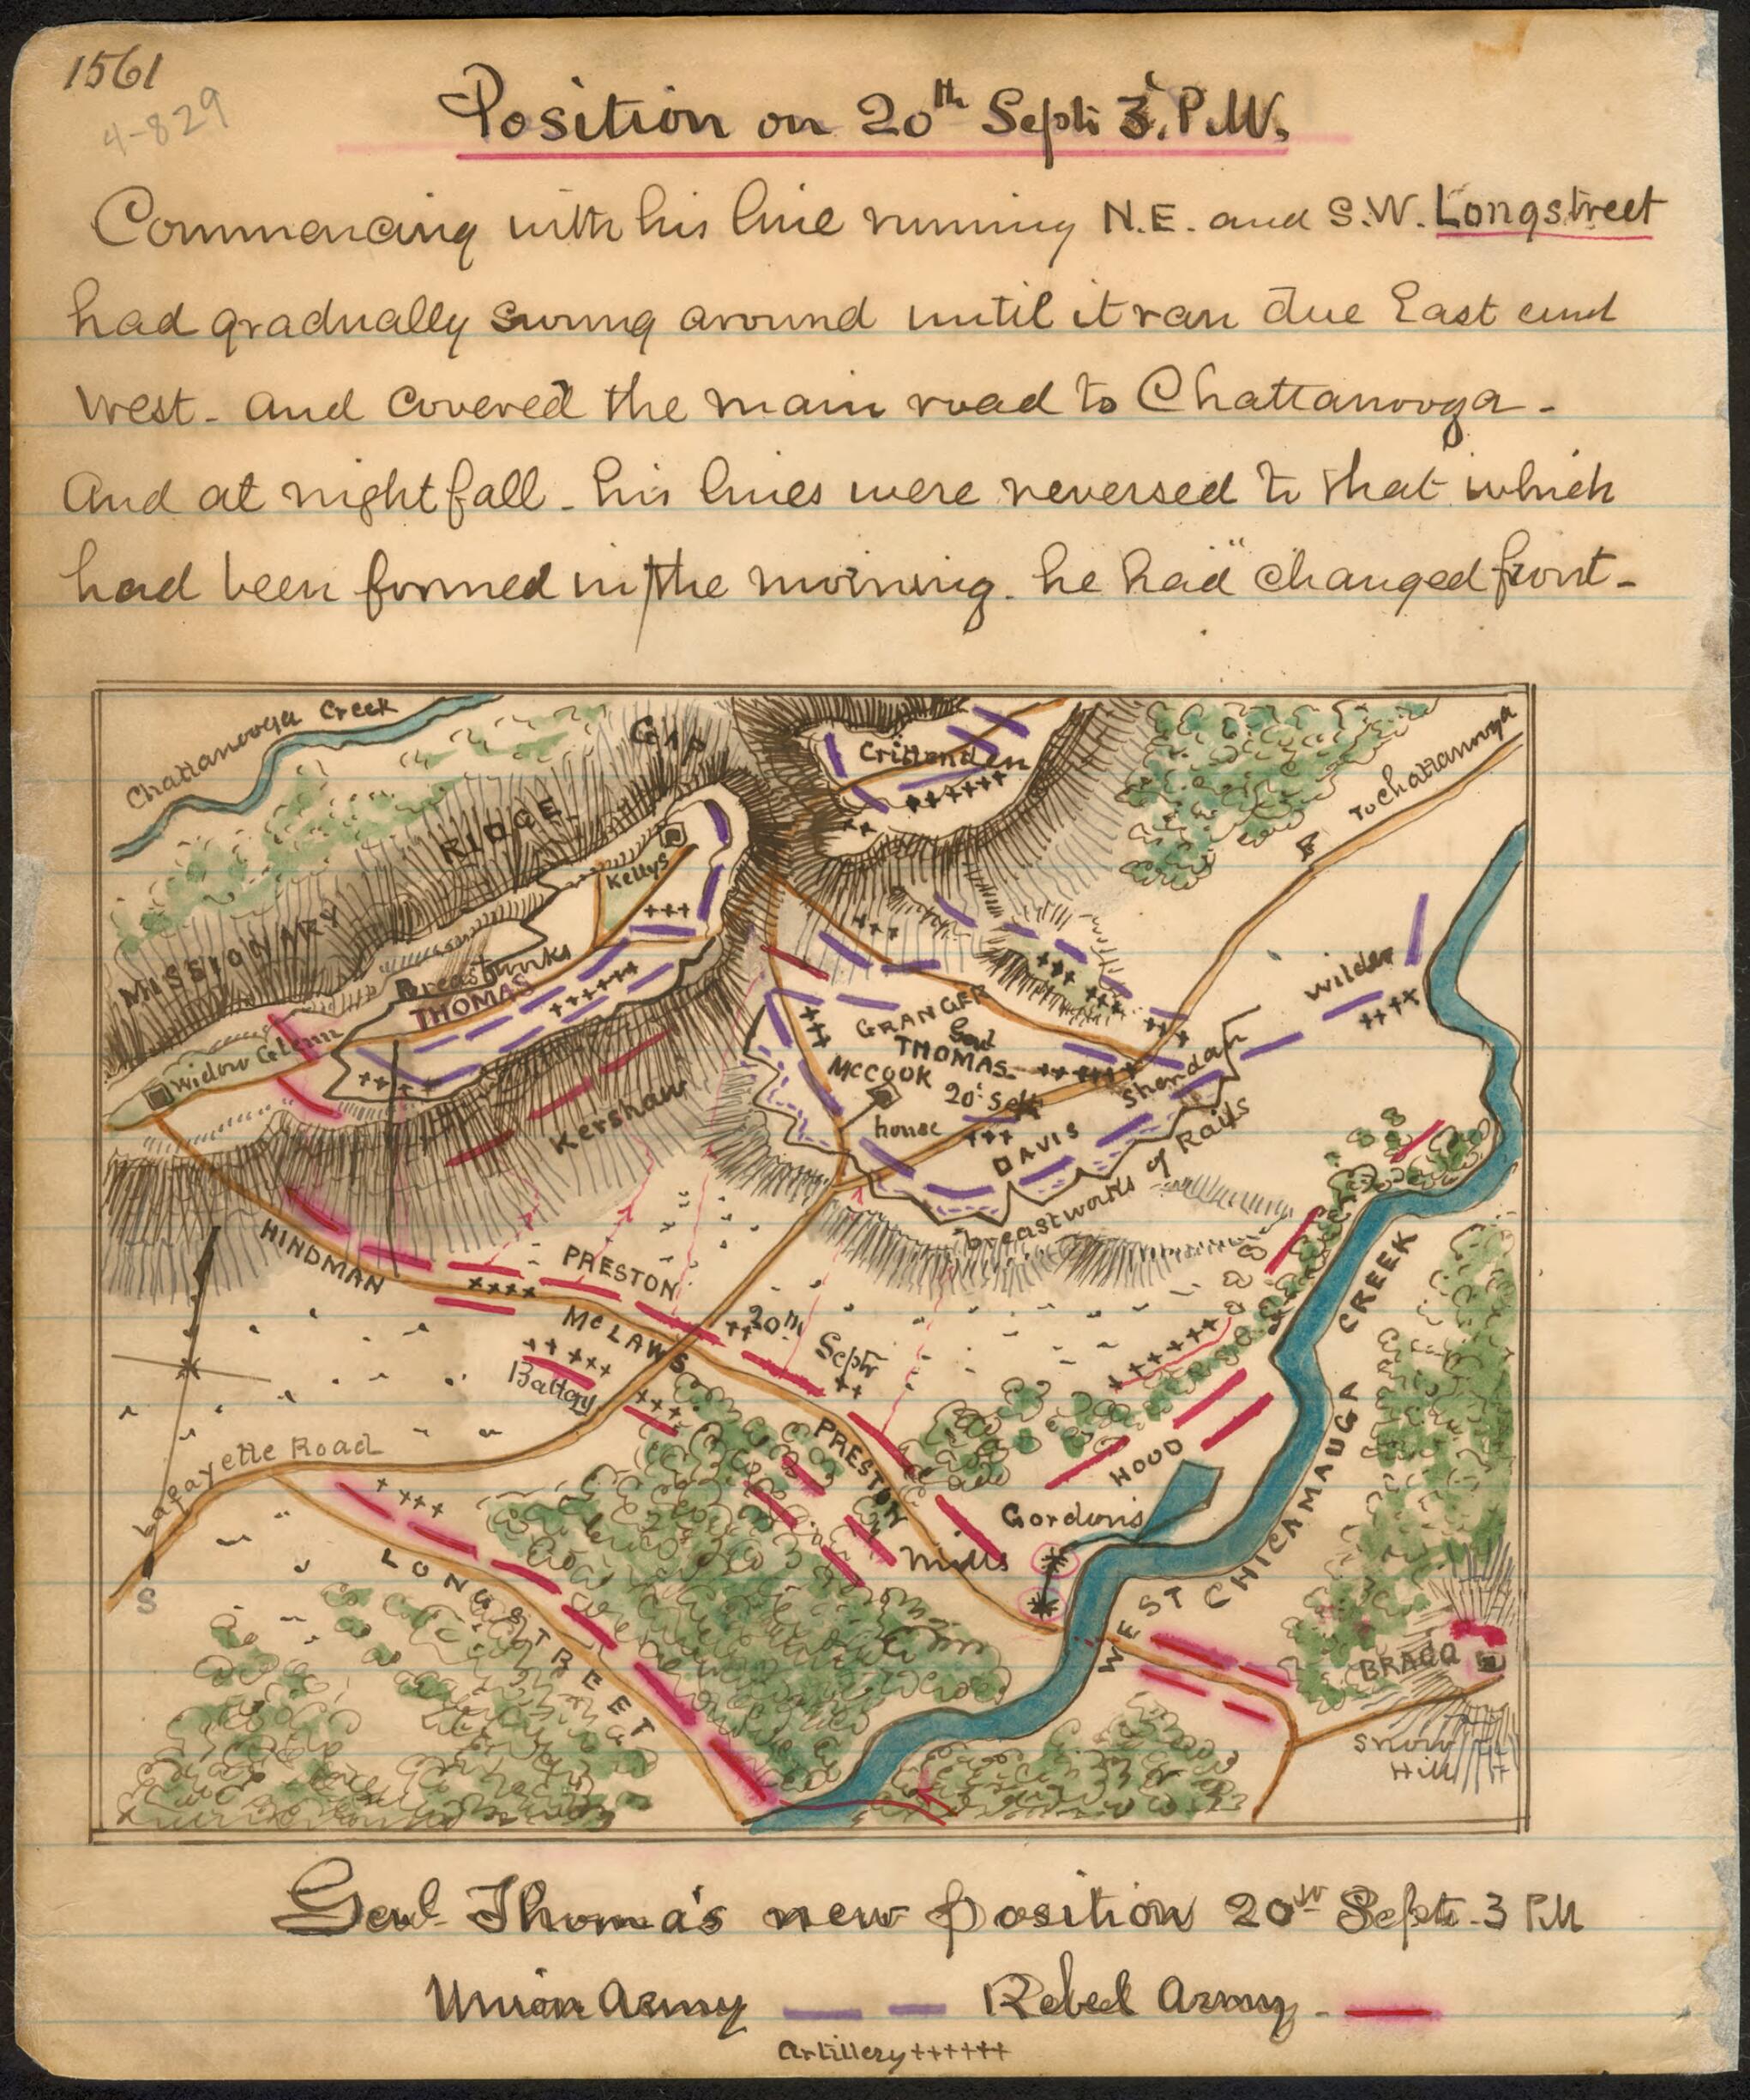 1561
4-829
Position on 20th Sept: 3. P.M.
Commencing with his line running N.E. and S.W. Longstreet
had gradually swung around until it ran due East and
West - and covered the main road to Chattanooga -
And at nightfall - his lines were reversed to that which
had been formed in the morning. he had "changed front -
Chattanooga Creek
Gap
Crittenden
To Chattanooga
RIDGE
MISSIONARY
Kellys
Breastworks
THOMAS
Widow Glenn
Kershaw
Wilder
GRANGER
Genl
THOMAS
MCCOOK
20: Sept
house
Sheridan
DAVIS
breastworks of Rails
HINDMAN
PRESTON
McLAWS
20th
Sept
Battery
PRESTON
Lafayette Road
S
LONGSTREET
HOOD
Gordon's
Mills
WEST CHICAMAUGA CREEK
BRAGG
Snow
Hill
Genl Thomas's new position 20th Sept. 3 PM
Union Army
Rebel Army -
Artillery ++++++